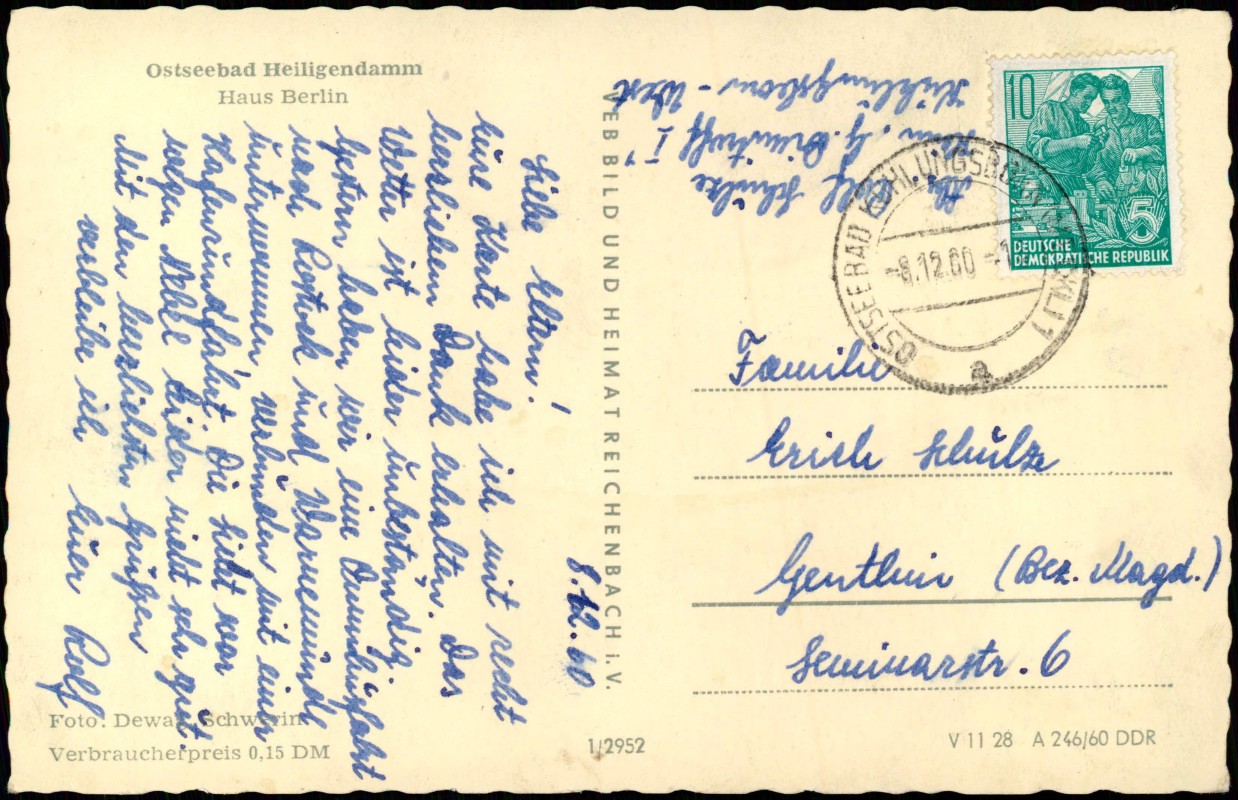 Ostseebad Heiligendamm
Haus Berlin
8.12.60
Liebe Eltern!
Eure Karte habe ich mit recht
herzlichem Dank erhalten. Das
Wetter ist leider unbeständig.
Gestern haben wir eine Dummelfahrt
nach Rostock und Warnemünde
unternommen verbunden mit einer
Hafenrundfahrt. Die Sicht war
wegen Nebel leider nicht sehr gut.
Mit den herzlichsten Grüßen
verbleibe ich Euer Rolf
Foto: Dewag, Schwerin
Verbraucherpreis 0,15 DM
VEB BILD UND HEIMAT REICHENBACH i. V.
1/2952
Abs. Rolf Schulze
Heim "G. Dimitroff I"
Kühlungsborn - West
10
5
DEUTSCHE
DEMOKRATISCHE REPUBLIK
OSTSEEBAD KÜHLUNGSBORN
-8.12.60
a
Familie
Erich Schulze
Genthin (Bez. Magd.)
Seminarstr. 6
V 11 28 A 246/60 DDR